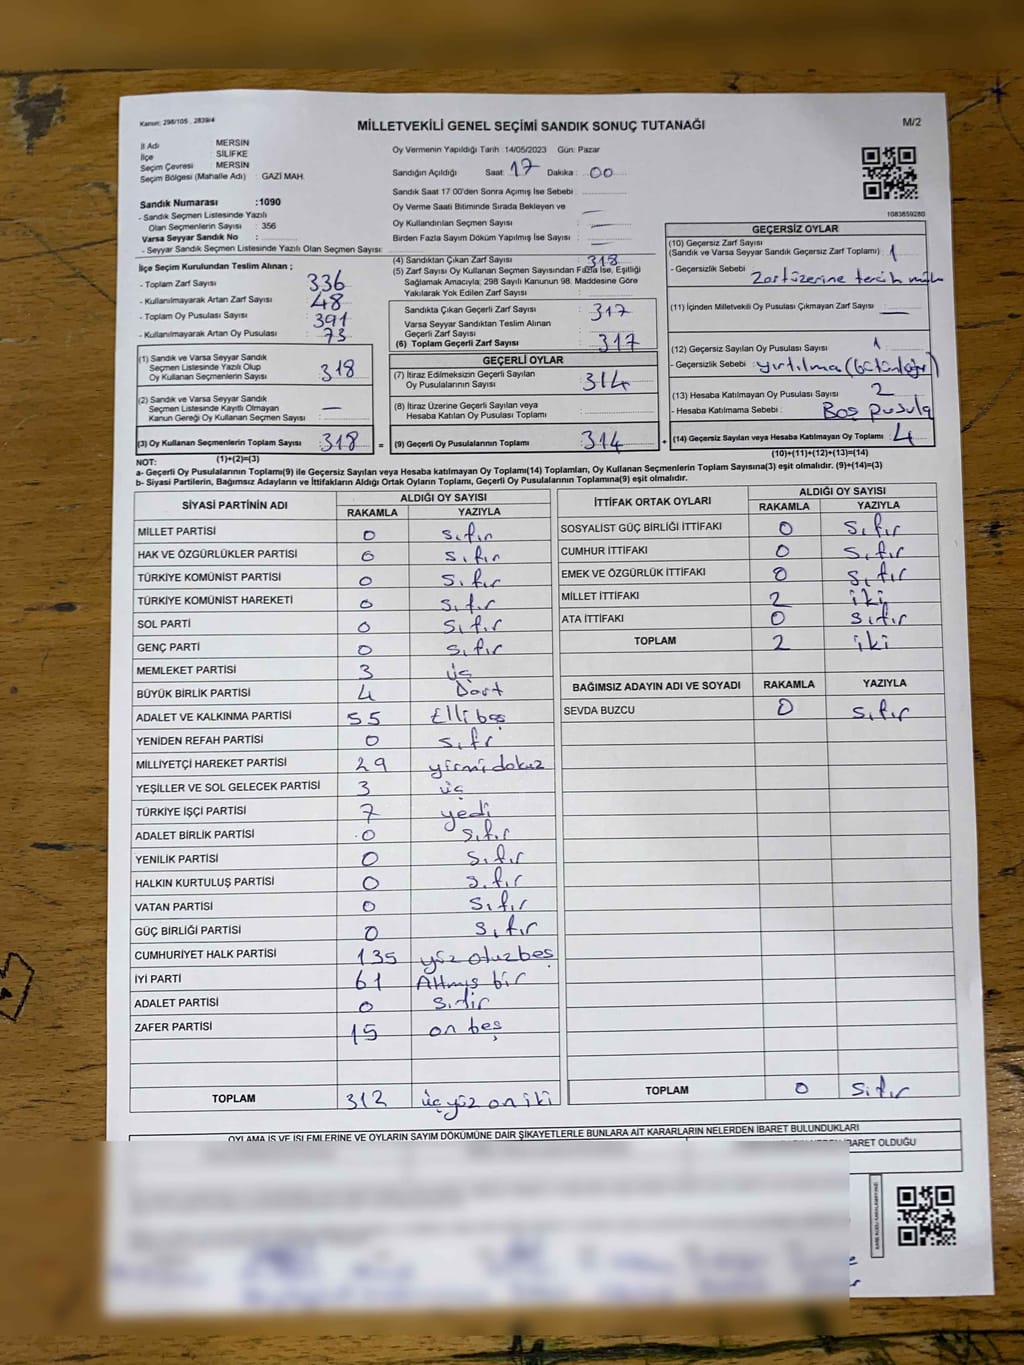 Kanun: 298/105 , 2839/4
MİLLETVEKİLİ GENEL SEÇİMİ SANDIK SONUÇ TUTANAĞI
M/2
İl Adı MERSİN
İlçe SİLİFKE
Seçim Çevresi MERSİN
Seçim Bölgesi (Mahalle Adı) : GAZİ MAH.
Oy Vermenin Yapıldığı Tarih :14/05/2023 Gün: Pazar
Sandığın Açıldığı Saat: 17 Dakika: 00
Sandık Saat 17:00'den Sonra Açımış İse Sebebi :
Oy Verme Saati Bitiminde Sırada Bekleyen ve
Oy Kullandırılan Seçmen Sayısı : —
Birden Fazla Sayım Döküm Yapılmış İse Sayısı : —
1083659280
Sandık Numarası :1090
- Sandık Seçmen Listesinde Yazılı
Olan Seçmenlerin Sayısı : 356
Varsa Seyyar Sandık No :
- Seyyar Sandık Seçmen Listesinde Yazılı Olan Seçmen Sayısı:
İlçe Seçim Kurulundan Teslim Alınan ;
- Toplam Zarf Sayısı : 336
- Kullanılmayarak Artan Zarf Sayısı : 48
- Toplam Oy Pusulası Sayısı : 391
- Kullanılmayarak Artan Oy Pusulası : 73
(1) Sandık ve Varsa Seyyar Sandık
Seçmen Listesinde Yazılı Olup
Oy Kullanan Seçmenlerin Sayısı : 318
(2) Sandık ve Varsa Seyyar Sandık
Seçmen Listesinde Kayıtlı Olmayan
Kanun Gereği Oy Kullanan Seçmen Sayısı : —
(3) Oy Kullanan Seçmenlerin Toplam Sayısı : 318 =
(1)+(2)=(3)
(4) Sandıktan Çıkan Zarf Sayısı : 318
(5) Zarf Sayısı Oy Kullanan Seçmen Sayısından Fazla İse, Eşitliği
Sağlamak Amacıyla; 298 Sayılı Kanunun 98. Maddesine Göre
Yakılarak Yok Edilen Zarf Sayısı :
Sandıkta Çıkan Geçerli Zarf Sayısı : 317
Varsa Seyyar Sandıktan Teslim Alınan
Geçerli Zarf Sayısı :
(6) Toplam Geçerli Zarf Sayısı : 317
GEÇERLİ OYLAR
(7) İtiraz Edilmeksizin Geçerli Sayılan
Oy Pusulalarının Sayısı : 314
(8) İtiraz Üzerine Geçerli Sayılan veya
Hesaba Katılan Oy Pusulası Toplamı :
(9) Geçerli Oy Pusulalarının Toplamı : 314 +
GEÇERSİZ OYLAR
(10) Geçersiz Zarf Sayısı
(Sandık ve Varsa Seyyar Sandık Geçersiz Zarf Toplamı) : 1
- Geçersizlik Sebebi : Zarf üzerine tercih
(11) İçinden Milletvekili Oy Pusulası Çıkmayan Zarf Sayısı : —
(12) Geçersiz Sayılan Oy Pusulası Sayısı : 1
- Geçersizlik Sebebi : yırtılma
(13) Hesaba Katılmayan Oy Pusulası Sayısı : 2
- Hesaba Katılmama Sebebi : Boş pusula
(14) Geçersiz Sayılan veya Hesaba Katılmayan Oy Toplamı : 4
(10)+(11)+(12)+(13)=(14)
NOT:
a- Geçerli Oy Pusulalarının Toplamı(9) ile Geçersiz Sayılan veya Hesaba katılmayan Oy Toplam(14) Toplamları, Oy Kullanan Seçmenlerin Toplam Sayısına(3) eşit olmalıdır. (9)+(14)=(3)
b- Siyasi Partilerin, Bağımsız Adayların ve İttifakların Aldığı Ortak Oyların Toplamı, Geçerli Oy Pusulalarının Toplamına(9) eşit olmalıdır.
SİYASİ PARTİNİN ADI ALDIĞI OY SAYISI
RAKAMLA YAZIYLA
MİLLET PARTİSİ 0 sıfır
HAK VE ÖZGÜRLÜKLER PARTİSİ 0 sıfır
TÜRKİYE KOMÜNİST PARTİSİ 0 sıfır
TÜRKİYE KOMÜNİST HAREKETİ 0 sıfır
SOL PARTİ 0 sıfır
GENÇ PARTİ 0 sıfır
MEMLEKET PARTİSİ 3 üç
BÜYÜK BİRLİK PARTİSİ 4 Dört
ADALET VE KALKINMA PARTİSİ 55 Elli beş
YENİDEN REFAH PARTİSİ 0 sıfr
MİLLİYETÇİ HAREKET PARTİSİ 29 yirmi dokuz
YEŞİLLER VE SOL GELECEK PARTİSİ 3 üç
TÜRKİYE İŞÇİ PARTİSİ 7 yedi
ADALET BİRLİK PARTİSİ 0 sıfır
YENİLİK PARTİSİ 0 sıfır
HALKIN KURTULUŞ PARTİSİ 0 sıfır
VATAN PARTİSİ 0 sıfır
GÜÇ BİRLİĞİ PARTİSİ 0 sıfır
CUMHURİYET HALK PARTİSİ 135 yüz otuz beş
İYİ PARTİ 61 Altmış bir
ADALET PARTİSİ 0 sıfır
ZAFER PARTİSİ 15 on beş
TOPLAM 312 üç yüz on iki
İTTİFAK ORTAK OYLARI ALDIĞI OY SAYISI
RAKAMLA YAZIYLA
SOSYALİST GÜÇ BİRLİĞİ İTTİFAKI 0 sıfır
CUMHUR İTTİFAKI 0 sıfır
EMEK VE ÖZGÜRLÜK İTTİFAKI 0 sıfır
MİLLET İTTİFAKI 2 iki
ATA İTTİFAKI 0 sıfır
TOPLAM 2 iki
BAĞIMSIZ ADAYIN ADI VE SOYADI RAKAMLA YAZIYLA
SEVDA BUZCU 0 sıfır
TOPLAM 0 sıfır
OYLAMA İŞ VE İŞLEMLERİNE VE OYLARIN SAYIM DÖKÜMÜNE DAİR ŞİKAYETLERLE BUNLARA AİT KARARLARIN NELERDEN İBARET BULUNDUKLARI
İBARET OLDUĞU